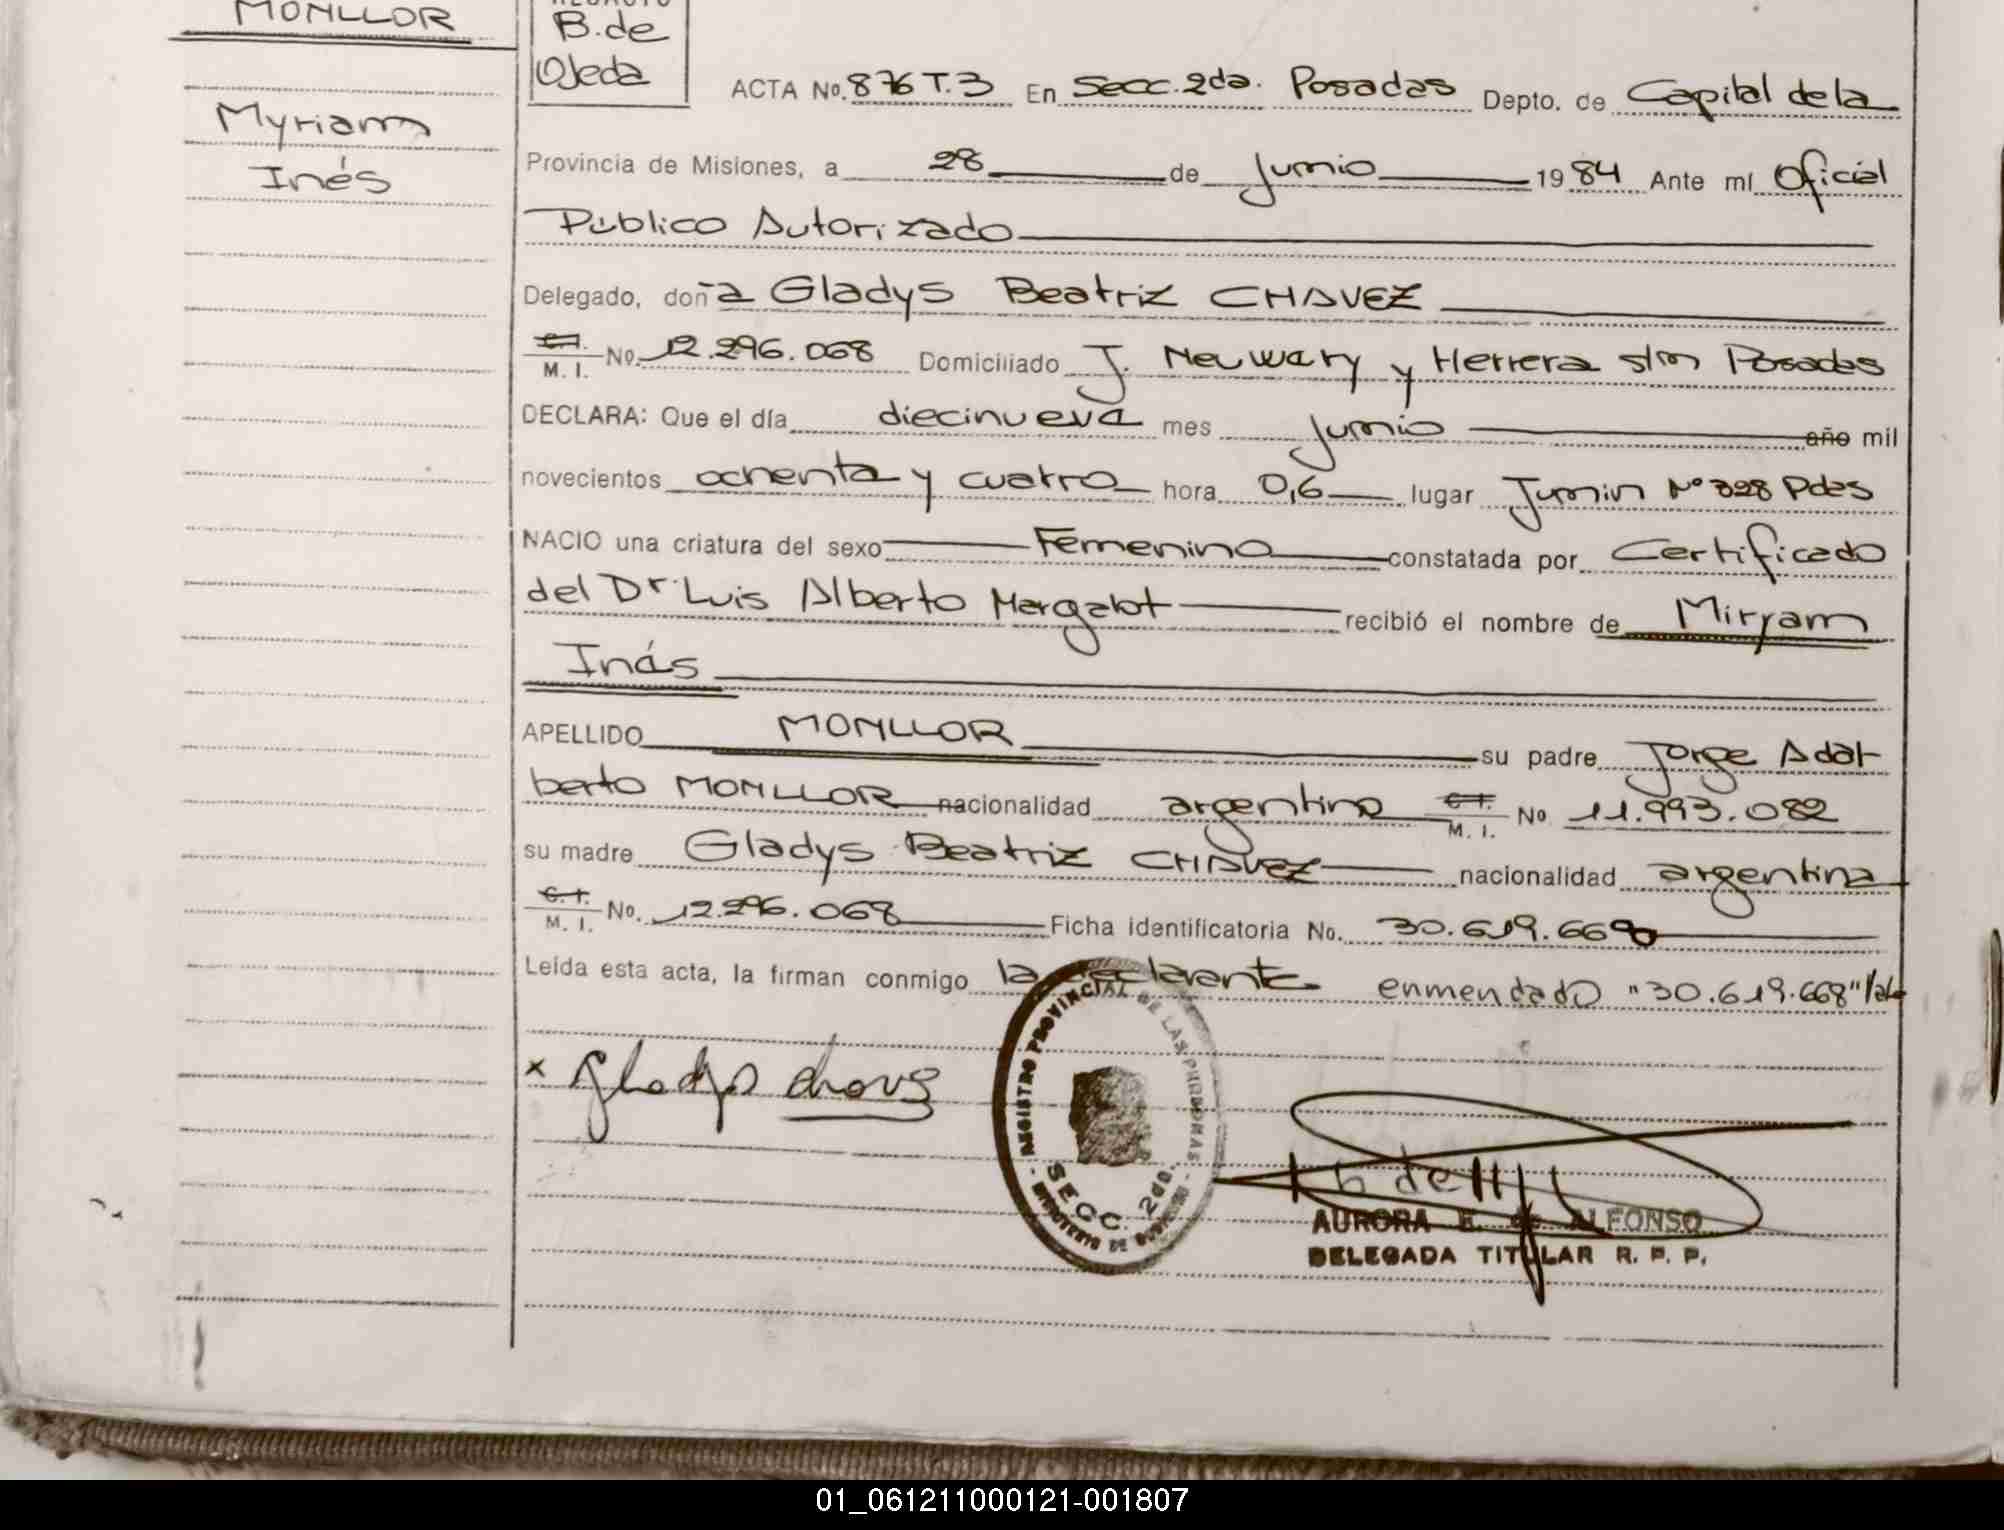 MONLLOR
Myriam
Inés
REDACTO
B. de
Ojeda
ACTA No. 876 T.3 En Secc. 2da. Posadas Depto. de Capital de la
Provincia de Misiones, a 28 de Junio 19 84 Ante mí Oficial
Público Autorizado
Delegado, doña Gladys Beatriz CHAVEZ
C.I. M. I. No. 12.296.068 Domiciliado J. Neuwery y Herrera s/n Posadas
DECLARA: Que el día diecinueve mes Junio año mil
novecientos ochenta y cuatro hora 0,6 lugar Junin Nº 328 Pdas
NACIO una criatura del sexo Femenino constatada por Certificado
del Dr. Luis Alberto Margalot recibió el nombre de Miryam
Inés
APELLIDO MONLLOR su padre Jorge Adal
berto MONLLOR nacionalidad argentino C.I. M. I. No 11.993.082
su madre Gladys Beatriz CHAVEZ nacionalidad argentina
C.I. M. I. No. 12.296.068 Ficha identificatoria No. 30.619.668
Leída esta acta, la firman conmigo la declarante enmendado "30.619.668" Vale
x Gladys Chavez
REGISTRO PROVINCIAL DE LAS PERSONAS
SECC. 2da.
MINISTERIO DE GOBIERNO
AURORA E. de ALFONSO
DELEGADA TITULAR R. P. P.
01_061211000121-001807